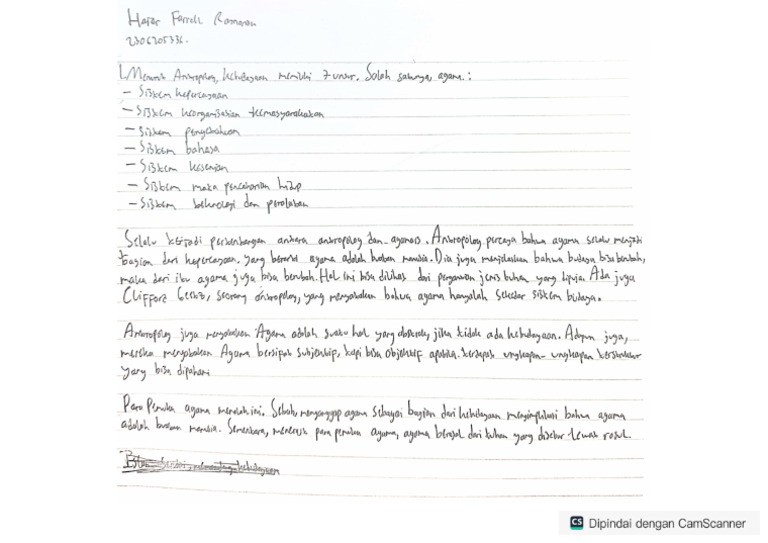 Farrell
2306205336.
1. Menurut Antropolog, kebudayaan memiliki 7 unsur. Salah satunya, agama. :
- Sistem kepercayaan
- Sistem keorganisasian kemasyarakatan
- Sistem pengetahuan
- Sistem bahasa
- Sistem kesenian
- Sistem mata pencaharian hidup
- Sistem teknologi dan peralatan
Selalu terjadi pertentangan antara antropolog dan agamais. Antropolog percaya bahwa agama selalu menjadi
bagian dari kepercayaan, yang berarti agama adalah buatan manusia. Dia juga menjelaskan bahwa budaya bisa berubah,
maka dari itu agama juga bisa berubah. Hal ini bisa dilihat dari pergantian jenis tuhan yang dipuja. Ada juga
Clifford Geertz, seorang antropolog, yang menyatakan bahwa agama hanyalah sekedar sistem budaya.
Antropolog juga menyatakan Agama adalah suatu hal yang abstrak, jika tidak ada kebudayaan. Adapun juga,
mereka menyatakan Agama bersifat subjektif, tapi bisa objektif apabila terdapat ungkapan-ungkapan
yang bisa dipahami
Para Pemuka agama menolak ini. Sebab, menganggap agama sebagai bagian dari kebudayaan mengimplikasi bahwa agama
adalah buatan manusia. Sementara, menurut para pemuka agama, agama berasal dari tuhan yang disebar lewat rasul.
CS Dipindai dengan CamScanner